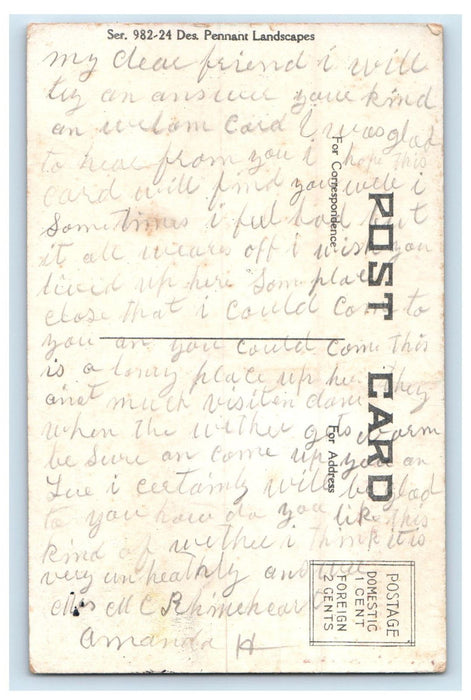 Ser. 982-24 Des. Pennant Landscapes
my dear friend i will
try an answer your kind
an welcom card I was glad
to hear from you i hope this
card will find you well i
Sometimes i feel bad but
it all weares off i wish you
lived up here Some place
close that i could come to
you an you could come this
is a lonry place up her they
aint much visiten done
when the wether gets warm
be Sure an come up you an
Lue i certainly will be glad
to you how do you like this
kind of wether i think it is
very un healthy
Mrs M C
Amanda H
For Correspondence
POST CARD
For Address
POSTAGE
DOMESTIC
1 CENT
FOREIGN
2 CENTS